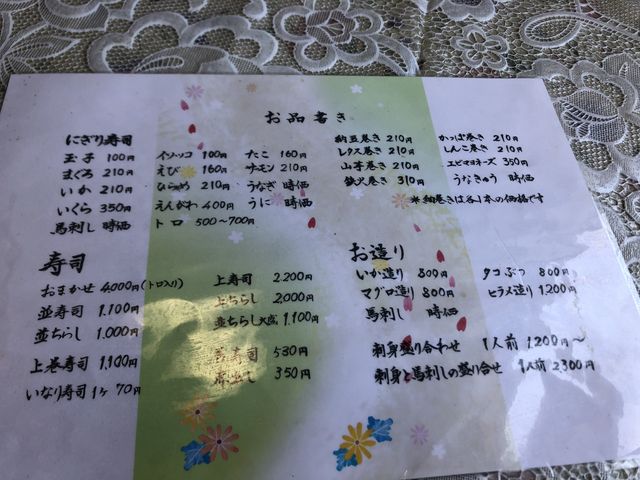 お品書き
にぎり寿司
玉子 100円
まぐろ 210円
いか 210円
いくら 350円
馬刺し 時価
イソッコ 100円
えび 160円
ひらめ 210円
えんがわ 400円
トロ 500〜700円
たこ 160円
サーモン 210円
うなぎ 時価
うに 時価
納豆巻き 210円
レタス巻き 210円
山芋巻き 210円
鉄火巻き 310円
かっぱ巻き 210円
しんこ巻き 210円
エビマヨネーズ 350円
うなきゅう 時価
※細巻きは各1本の価格です
寿司
おまかせ 4,000円(トロ入り)
並寿司 1,100円
並ちらし 1,000円
上巻寿司 1,100円
いなり寿司 1ケ 70円
上寿司 2,200円
上ちらし 2,000円
並ちらし大盛 1,100円
寿司 530円
350円
お造り
いか造り 800円
マグロ造り 800円
馬刺し 時価
タコぶつ 800円
ヒラメ造り 1,200円
刺身盛り合わせ 1人前 1,200円〜
刺身と馬刺しの盛り合せ 1人前 2300円